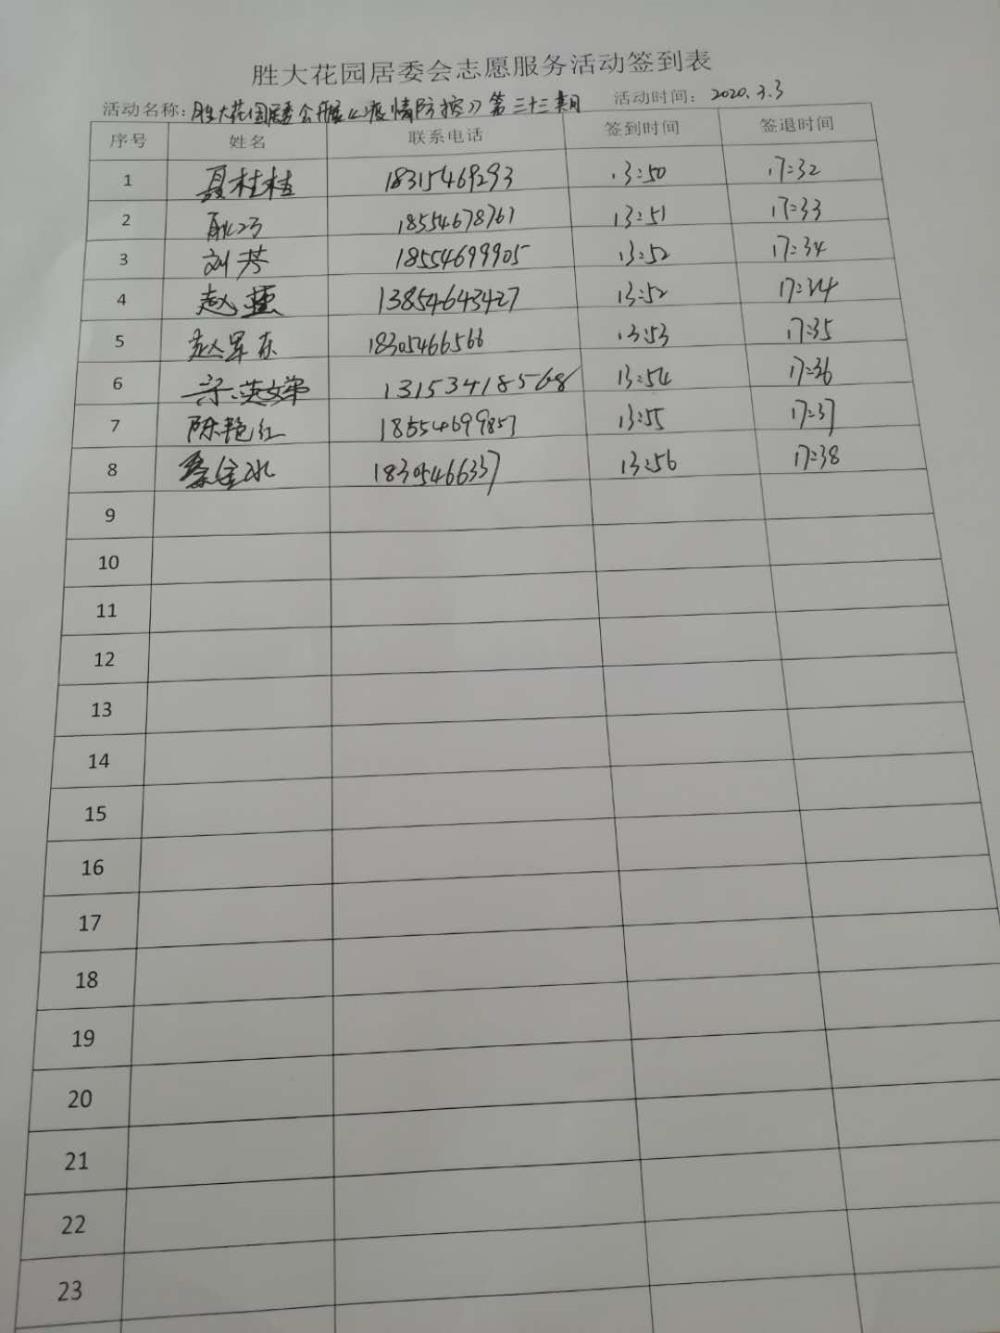 胜大花园居委会志愿服务活动签到表
活动名称：胜大花园居委会开展《疫情防控》第三十三期 活动时间：2020.3.3
序号 姓名 联系电话 签到时间 签退时间
1 聂桂桂 18315469293 13:50 17:32
2 18554678761 13:51 17:33
3 刘芳 18554699905 13:52 17:34
4 赵 13854643427 13:52 17:34
5 赵军东 18305466566 13:53 17:35
6 13153418568 13:54 17:36
7 陈艳红 18554699857 13:55 17:37
8 秦金水 18305466337 13:56 17:38
9
10
11
12
13
14
15
16
17
18
19
20
21
22
23